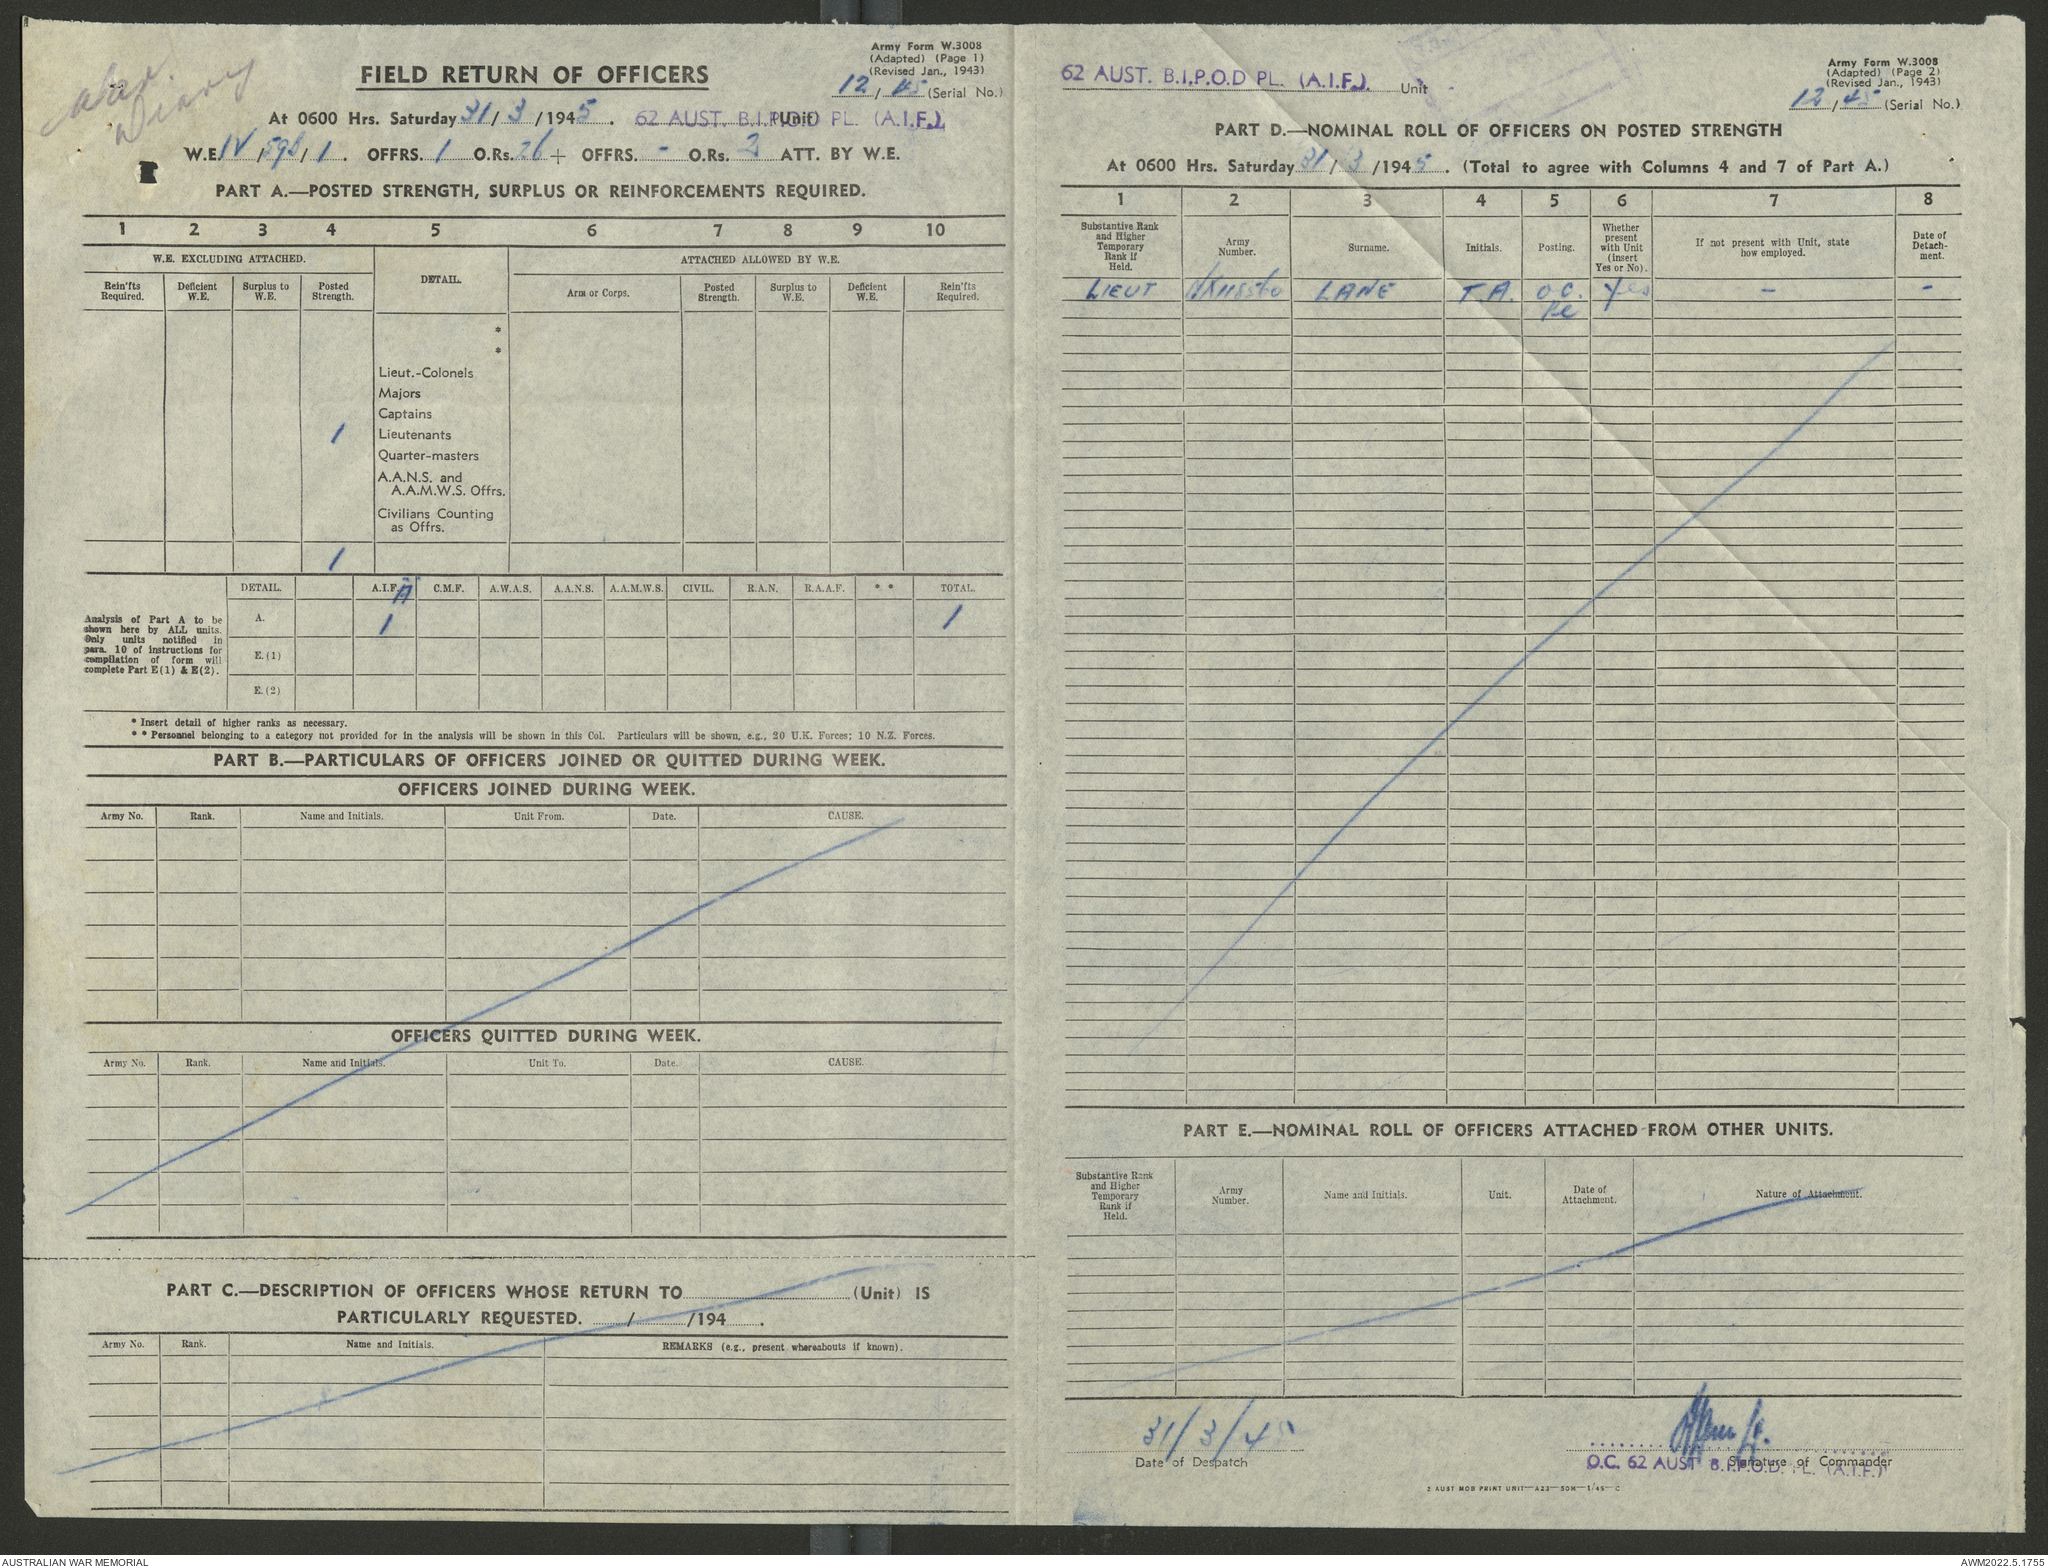 War
Diary
Army Form W.3008
(Adapted) (Page 1)
(Revised Jan., 1943)
FIELD RETURN OF OFFICERS
12 / 45 (Serial No.)
At 0600 Hrs. Saturday 31 / 3 / 1945. 62 AUST. B.I.P.O.D PL. (A.I.F.) (Unit)
W.E. IV / 59b / 1. OFFRS. 1 O.Rs. 26 + OFFRS. - O.Rs. 2 ATT. BY W.E.
PART A.—POSTED STRENGTH, SURPLUS OR REINFORCEMENTS REQUIRED.
1 2 3 4 5 6 7 8 9 10
W.E. EXCLUDING ATTACHED. DETAIL. ATTACHED ALLOWED BY W.E.
Rein'fts Required. Deficient W.E. Surplus to W.E. Posted Strength. Arm or Corps. Posted Strength. Surplus to W.E. Deficient W.E. Rein'fts Required.
*
*
Lieut.-Colonels
Majors
Captains
1 Lieutenants
Quarter-masters
A.A.N.S. and
A.A.M.W.S. Offrs.
Civilians Counting
as Offrs.
1
DETAIL. A.I.F. A C.M.F. A.W.A.S. A.A.N.S. A.A.M.W.S. CIVIL. R.A.N. R.A.A.F. * * TOTAL.
Analysis of Part A to be
shown here by ALL units.
Only units notified in
para. 10 of instructions for
compilation of form will
complete Part E(1) & E(2).
A. 1 1
E.(1)
E.(2)
* Insert detail of higher ranks as necessary.
* * Personnel belonging to a category not provided for in the analysis will be shown in this Col. Particulars will be shown, e.g., 20 U.K. Forces; 10 N.Z. Forces.
PART B.—PARTICULARS OF OFFICERS JOINED OR QUITTED DURING WEEK.
OFFICERS JOINED DURING WEEK.
Army No. Rank. Name and Initials. Unit From. Date. CAUSE.
OFFICERS QUITTED DURING WEEK.
Army No. Rank. Name and Initials. Unit To. Date. CAUSE.
PART C.—DESCRIPTION OF OFFICERS WHOSE RETURN TO (Unit) IS
PARTICULARLY REQUESTED. / /194 .
Army No. Rank. Name and Initials. REMARKS (e.g., present whereabouts if known).
62 AUST. B.I.P.O.D PL. (A.I.F.) Unit
Army Form W.3008
(Adapted) (Page 2)
(Revised Jan., 1943)
12 / 45 (Serial No.)
PART D.—NOMINAL ROLL OF OFFICERS ON POSTED STRENGTH
At 0600 Hrs. Saturday 31 / 3 / 1945. (Total to agree with Columns 4 and 7 of Part A.)
1 2 3 4 5 6 7 8
Substantive Rank and Higher Temporary Rank if Held. Army Number. Surname. Initials. Posting. Whether present with Unit (insert Yes or No). If not present with Unit, state how employed. Date of Detach-ment.
LIEUT NX118560 LANE T.A. O.C. Yes - -
PART E.—NOMINAL ROLL OF OFFICERS ATTACHED FROM OTHER UNITS.
Substantive Rank and Higher Temporary Rank if Held. Army Number. Name and Initials. Unit. Date of Attachment. Nature of Attachment.
31/3/45
Date of Despatch
Signature of Commander
O.C. 62 AUST B.I.P.O.D. PL. (A.I.F.)
2 AUST MOB PRINT UNIT—A23—50M—1/45—C
AUSTRALIAN WAR MEMORIAL
AWM2022.5.1755